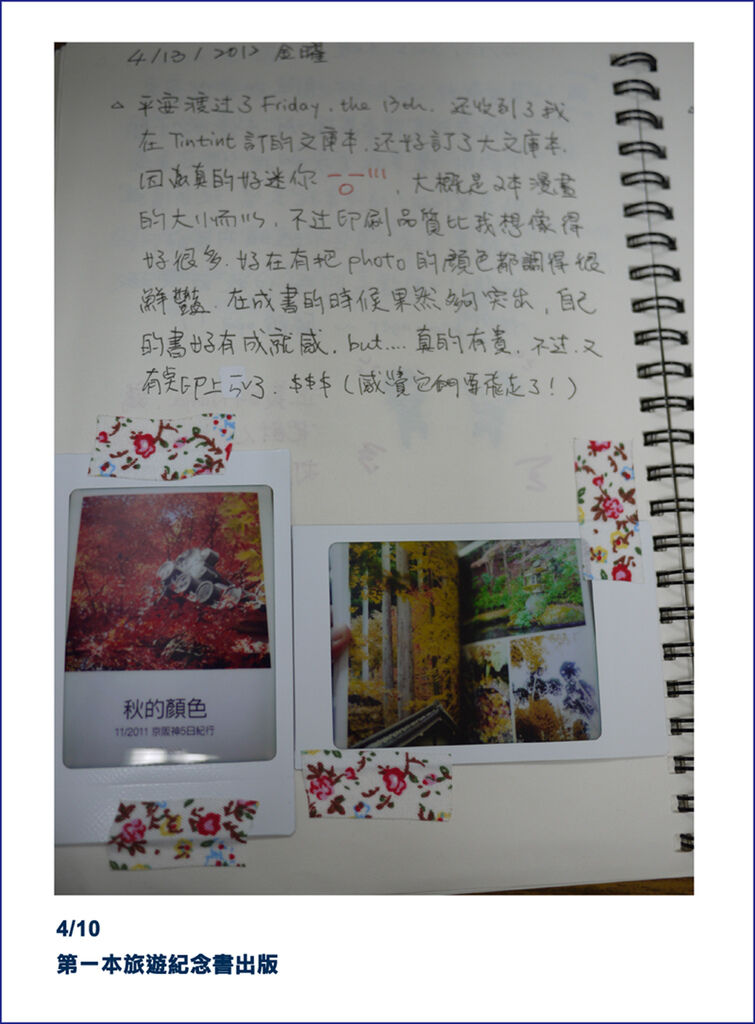 4/13/2012 金曜
△ 平安渡过了Friday. the 13th. 还收到了我
在Tintint訂的文庫本. 还好訂了大文庫本.
因為真的好迷你 , 大概是2本漫畫
的大小而以, 不过印刷品質比我想像得
好很多. 好在有把photo的顏色都調得很
鮮豔. 在成書的時候果然夠突出, 自己
的書好有成就感. but.... 真的有貴, 不过, 又
有奌印上 了. $$$ (感覺它們要飛走了!)
秋的顏色
11/2011 京阪神5日紀行
4/10
第一本旅遊紀念書出版